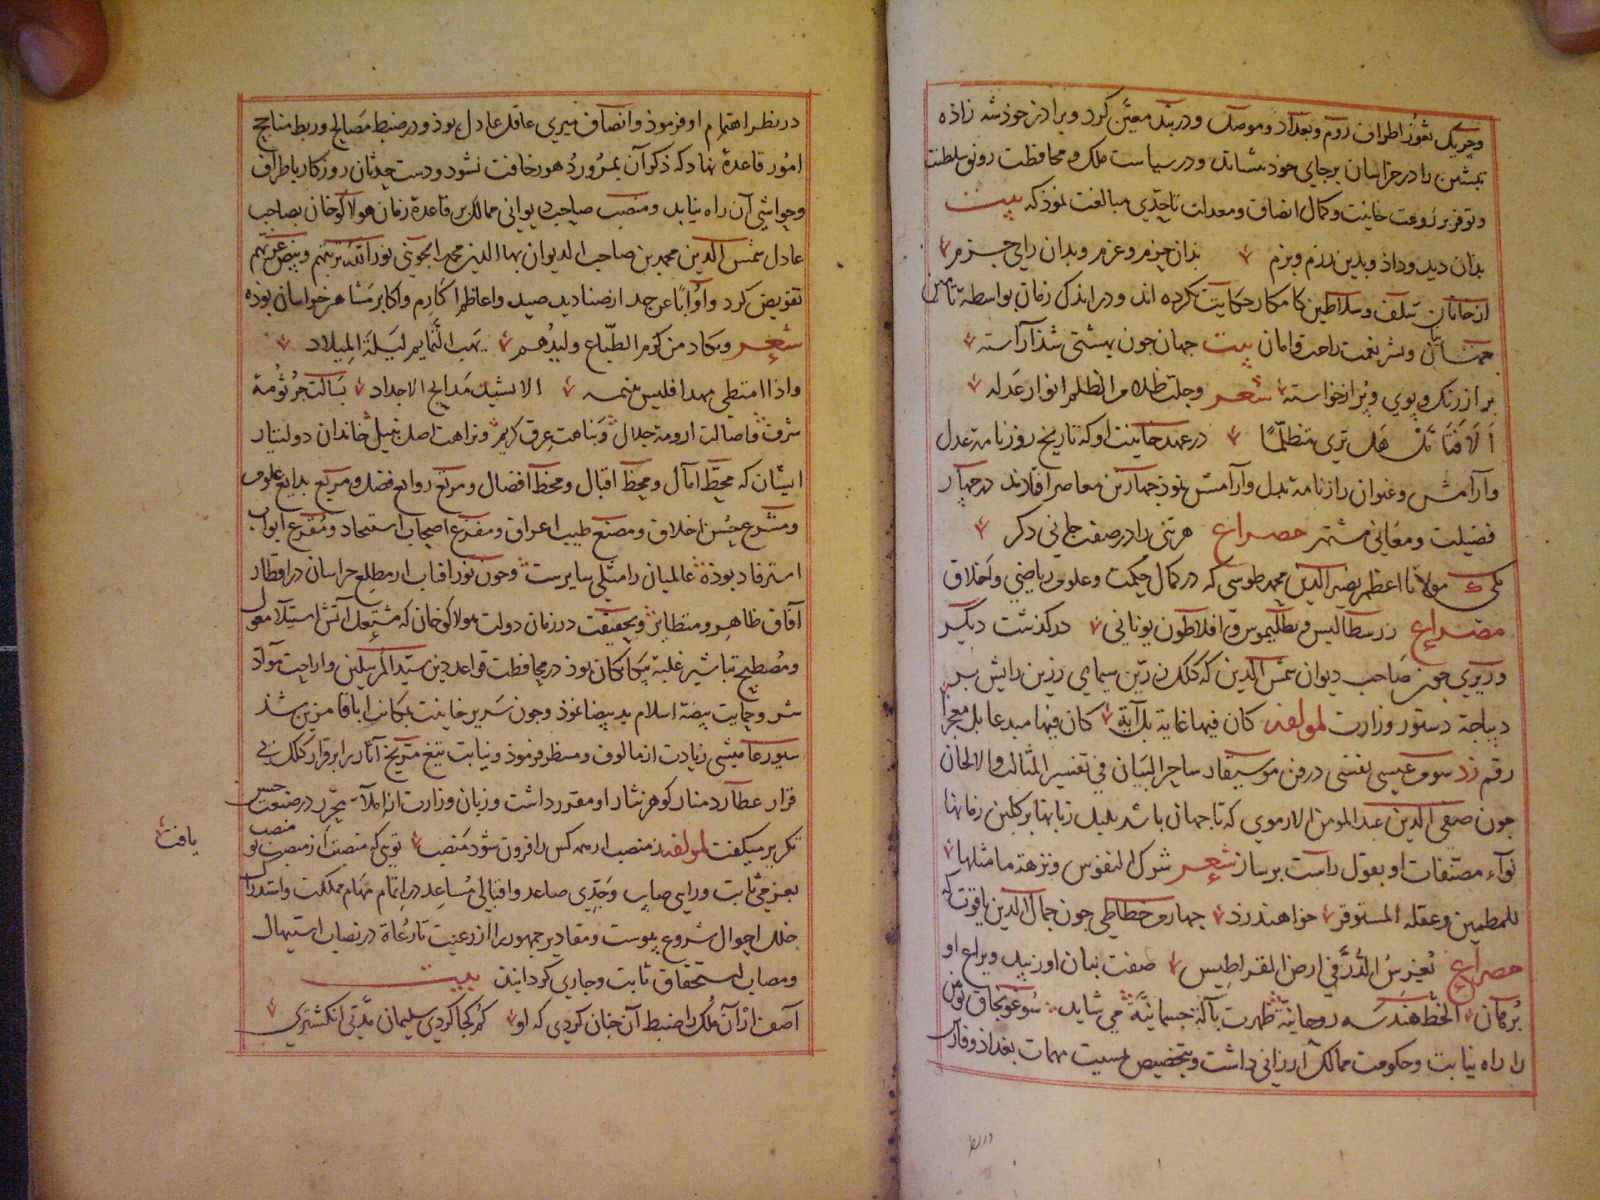 وچریک بثغور اطراف روم و بغداد و موصل و دربند معین کرد و برادر خود شهزاده
را در خراسان برجای خود بنشاند و در سیاست ملک و محافظت رونق سلطنت
و توفر بر رعیت خانیت و کمال انصاف و معدلت تا حدی مبالغت نموذ که بیت
بدان دید و داذ و بدین رزم و بزم بذان حزم و عزم و بدان رای جزم
از خانان سلف و سلاطین کامکار حکایت کرده اند و در اندک زمان بواسطه
و نشر نعمت راحت و امان بیت جهان چون بهشتی شذ آراسته
بر از رنک و بوی و پر از خواسته شعر وجلت ظلام الظلم انوار عدله
الا فتاملک هل تری متظلما در عهد خانیت او که تاریخ روزنامه عدل
و آرامش و عنوان رازنامه بذل و آرامش بوذ چهار کس معاصر افتادند در چهار
فضیلت و معانی مشتهر مصراع هر تنی را در صفت جانی دکر
یکی مولانا اعظم نصیر الدین محمد طوسی که در کمال حکمت و علوم ریاضی و اخلاق
مصراع زرسطالیس و بطلمیوس و افلاطون یونانی در کذشت دیکر
وزیری چون صاحب دیوان شمس الدین که کلک زرین سیمای رزین رایش بر
دیباجه دستور وزارت لمولفه کان فیها غایة بل آیة کان فیها مبدعا بل معجزا
رقم زد سوم عیسی نفسی در فن موسیقار ساحر البیان فی تفسیر المثالث و الالحان
چون صفی الدین عبد المومن الارموی که تا جهان باشد بلبل زبانها بر کلبن
نواء مصنفات او بقول راست بر ساز شعر شرک النفوس و نزهة ما مثلها
للمطمین و عقلة المستوفز خواهند زد چهارم خطاطی چون جمال الدین یاقوت که
مصراع تغرس الدر فی ارض القراطیس صفت بنان اوزیبد و یراع او
برکمان الخط هندسه روحانیة ظهرت بآلة جسمانیة می شاید سوغونجاق نوین
را راه نیابت و حکومت ممالک ارزانی داشت و بتخصیص عسیت مهمات بغداد و فارس
در ربط
در نظر اهتمام او فرموذ و انصاف میری عاقل عادل بوذ و در ضبط مصالح و ربط مناجح
امور قاعده نهاد که ذکر آن بمرور دهور خافت نشود و دست حدثان روزکار باطراف
و حواشی آن راه نیابد و منصب صاحب دیوانی ممالک بر قاعده زمان هولاکوخان بصاحب
عادل شمس الدین محمد بن صاحب الدیوان بها الدین محمد الجوینی نور الله تربتهم و بیض غرتهم
تفویض کرد و آبا عن جد از صنادید صید و اعاظم اکارم و اکابر مشاهر خراسان بوذه
شعر ویکاد من کرم الطباع ولیدهم یهب التمایم لیلة المیلاد
واذا امتطی مهدا فلیس ینیمه الا نشید مدایح الاجداد بسالت جرثومة
شرف و اصالت ارومة جلال و نباهت عرق کریم و نزاهت اصل نبیل خاندان دولتیار
ایشان که محط آمال و محظ اقبال و محط افضال و مرتع روایع فضل و مربع بدایع علوم
و مشرع حسن اخلاق و مصنع طیب اعراق و مفزع اصحاب استنجاد و مقرع ابواب
استرفاد بوذه عالمیان را مثلی سایرست و چون نور افتاب از مطلع خراسان در اقطار
آفاق ظاهر و متطایر و بحقیقت در زمان دولت هولاکوخان که مشتعل آتش استیلا مغول
و مصطبح تباشیر غلبه بود در محافظت قواعد دین سید المرسلین و ازاحت مواد
شر و حمایت بیضه اسلام ید بیضا نموذ و چون سریر خانیت بمکانت اباقا مزین شذ
سیورغامیشی زیادت از مالوف و منتظر فرموذ و نیابت تیغ مریخ آثار را بر قرار کلک بی
قرار عطارد منار کوهر نثار او مقرر داشت و زبان وزارت از املآ تحریر در صنعت حسن
تکریر میکفت لمولفه ز منصب ار همه کس را فزون شود منصب تویی که منصب از منصب تو منصب
یافت
بعزمی ثابت و رایی صایب و جدی صاعد و اقبالی مساعد در اتمام مهام مملکت و استدراک
خلل احوال شروع پیوست و مقادیر جمهور را از رعیت تا رعاة در نصاب استیهال
و مصاب استحقاق ثابت و جاری کردانید بیت
آصف ار آن ملک را ضبط آن چنان کردی که او کم کجا کردی سلیمان مدتی انکشتری